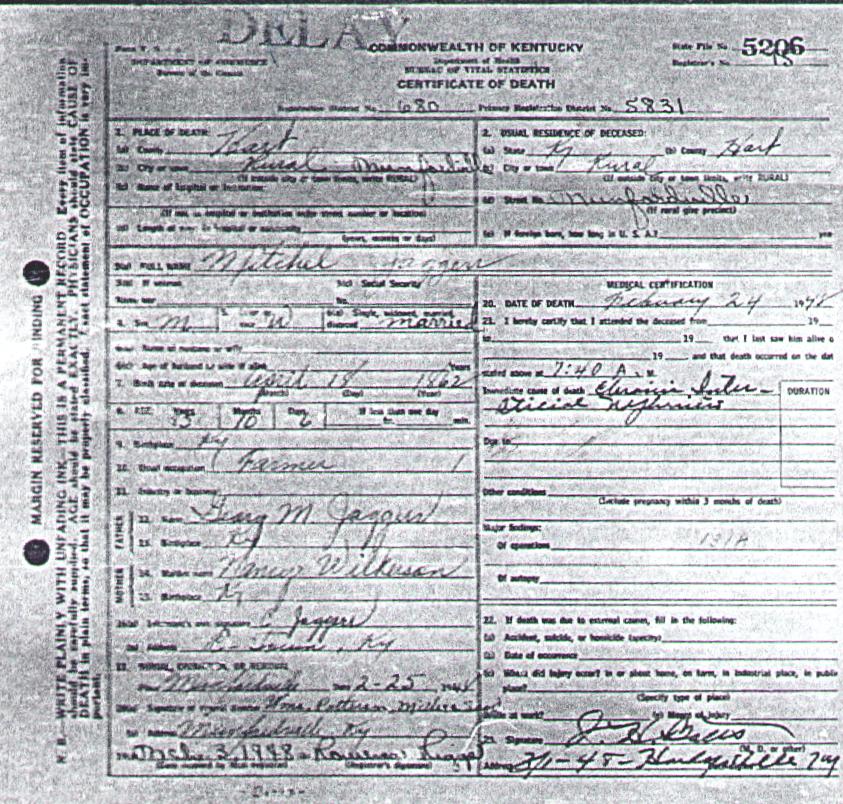 DELAY
COMMONWEALTH OF KENTUCKY
State File No. 5206
DEPARTMENT OF COMMERCE
Department of Health
Registrar's No. 15
Bureau of the Census
BUREAU OF VITAL STATISTICS
CERTIFICATE OF DEATH
Registration District No. 680 Primary Registration District No. 5831
1. PLACE OF DEATH:
(a) County Hart
(b) City or town Rural Munfordville
(If outside city or town limits, write RURAL)
(c) Name of hospital or institution:
(If not in hospital or institution write street number or location)
(d) Length of stay: in hospital or community
(years, months or days)
2. USUAL RESIDENCE OF DECEASED:
(a) State Ky (b) County Hart
(c) City or town Rural
(If outside city or town limits, write RURAL)
(d) Street No. Munfordville
(If rural give precinct)
(e) If foreign born, how long in U. S. A.? yea
3(a) FULL NAME Mitchel Jaggers
3(b) If veteran, 3(c) Social Security
Name war No.
4. Sex M 5. Color or race W 6(a) Single, widowed, married, divorced married
6(b) Name of husband or wife
6(c) Age of husband or wife if alive Years
7. Birth date of deceased April 18 1862
(Month) (Day) (Year)
8. AGE: Years Months Days If less than one day
10 hr. min.
9. Birthplace Ky
10. Usual occupation Farmer
11. Industry or business
FATHER
12. Name Georg M Jaggers
13. Birthplace Ky
MOTHER
14. Maiden name Nancy Wilkerson
15. Birthplace Ky
16(a) Informant's own signature C Jaggers
(b) Address E-Town, Ky
17. BURIAL, CREMATION, OR REMOVAL
Place Date 2-25, 1948
18(a) Signature of funeral director
(b) Address Munfordville Ky
19(a) Mch. 3, 1948
(Date received by local registrar) (Registrar's Signature)
MEDICAL CERTIFICATION
20. DATE OF DEATH February 24 1948
21. I hereby certify that I attended the deceased from 19
to 19 that I last saw him alive o
19 and that death occurred on the dat
stated above at 7:40 A. M.
Immediate cause of death Chronic Inter-
sticial nephritis
DURATION
Due to
Other conditions
(Include pregnancy within 3 months of death)
Major findings:
Of operations 131A
Of autopsy
22. If death was due to external causes, fill in the following:
(a) Accident, suicide, or homicide (specify)
(b) Date of occurrence
(c) Where did injury occur? In or about home, on farm, in industrial place, in public
place?
(Specify type of place)
While at work? (e) Means of injury
23. Signature
(M. D. or other)
Address 3/1-48-
MARGIN RESERVED FOR BINDING
N. B.—WRITE PLAINLY WITH UNFADING INK—THIS IS A PERMANENT RECORD. Every item of information
should be carefully supplied. AGE should be stated EXACTLY. PHYSICIANS should state CAUSE OF
DEATH in plain terms, so that it may be properly classified. Exact statement of OCCUPATION is very im-
portant.